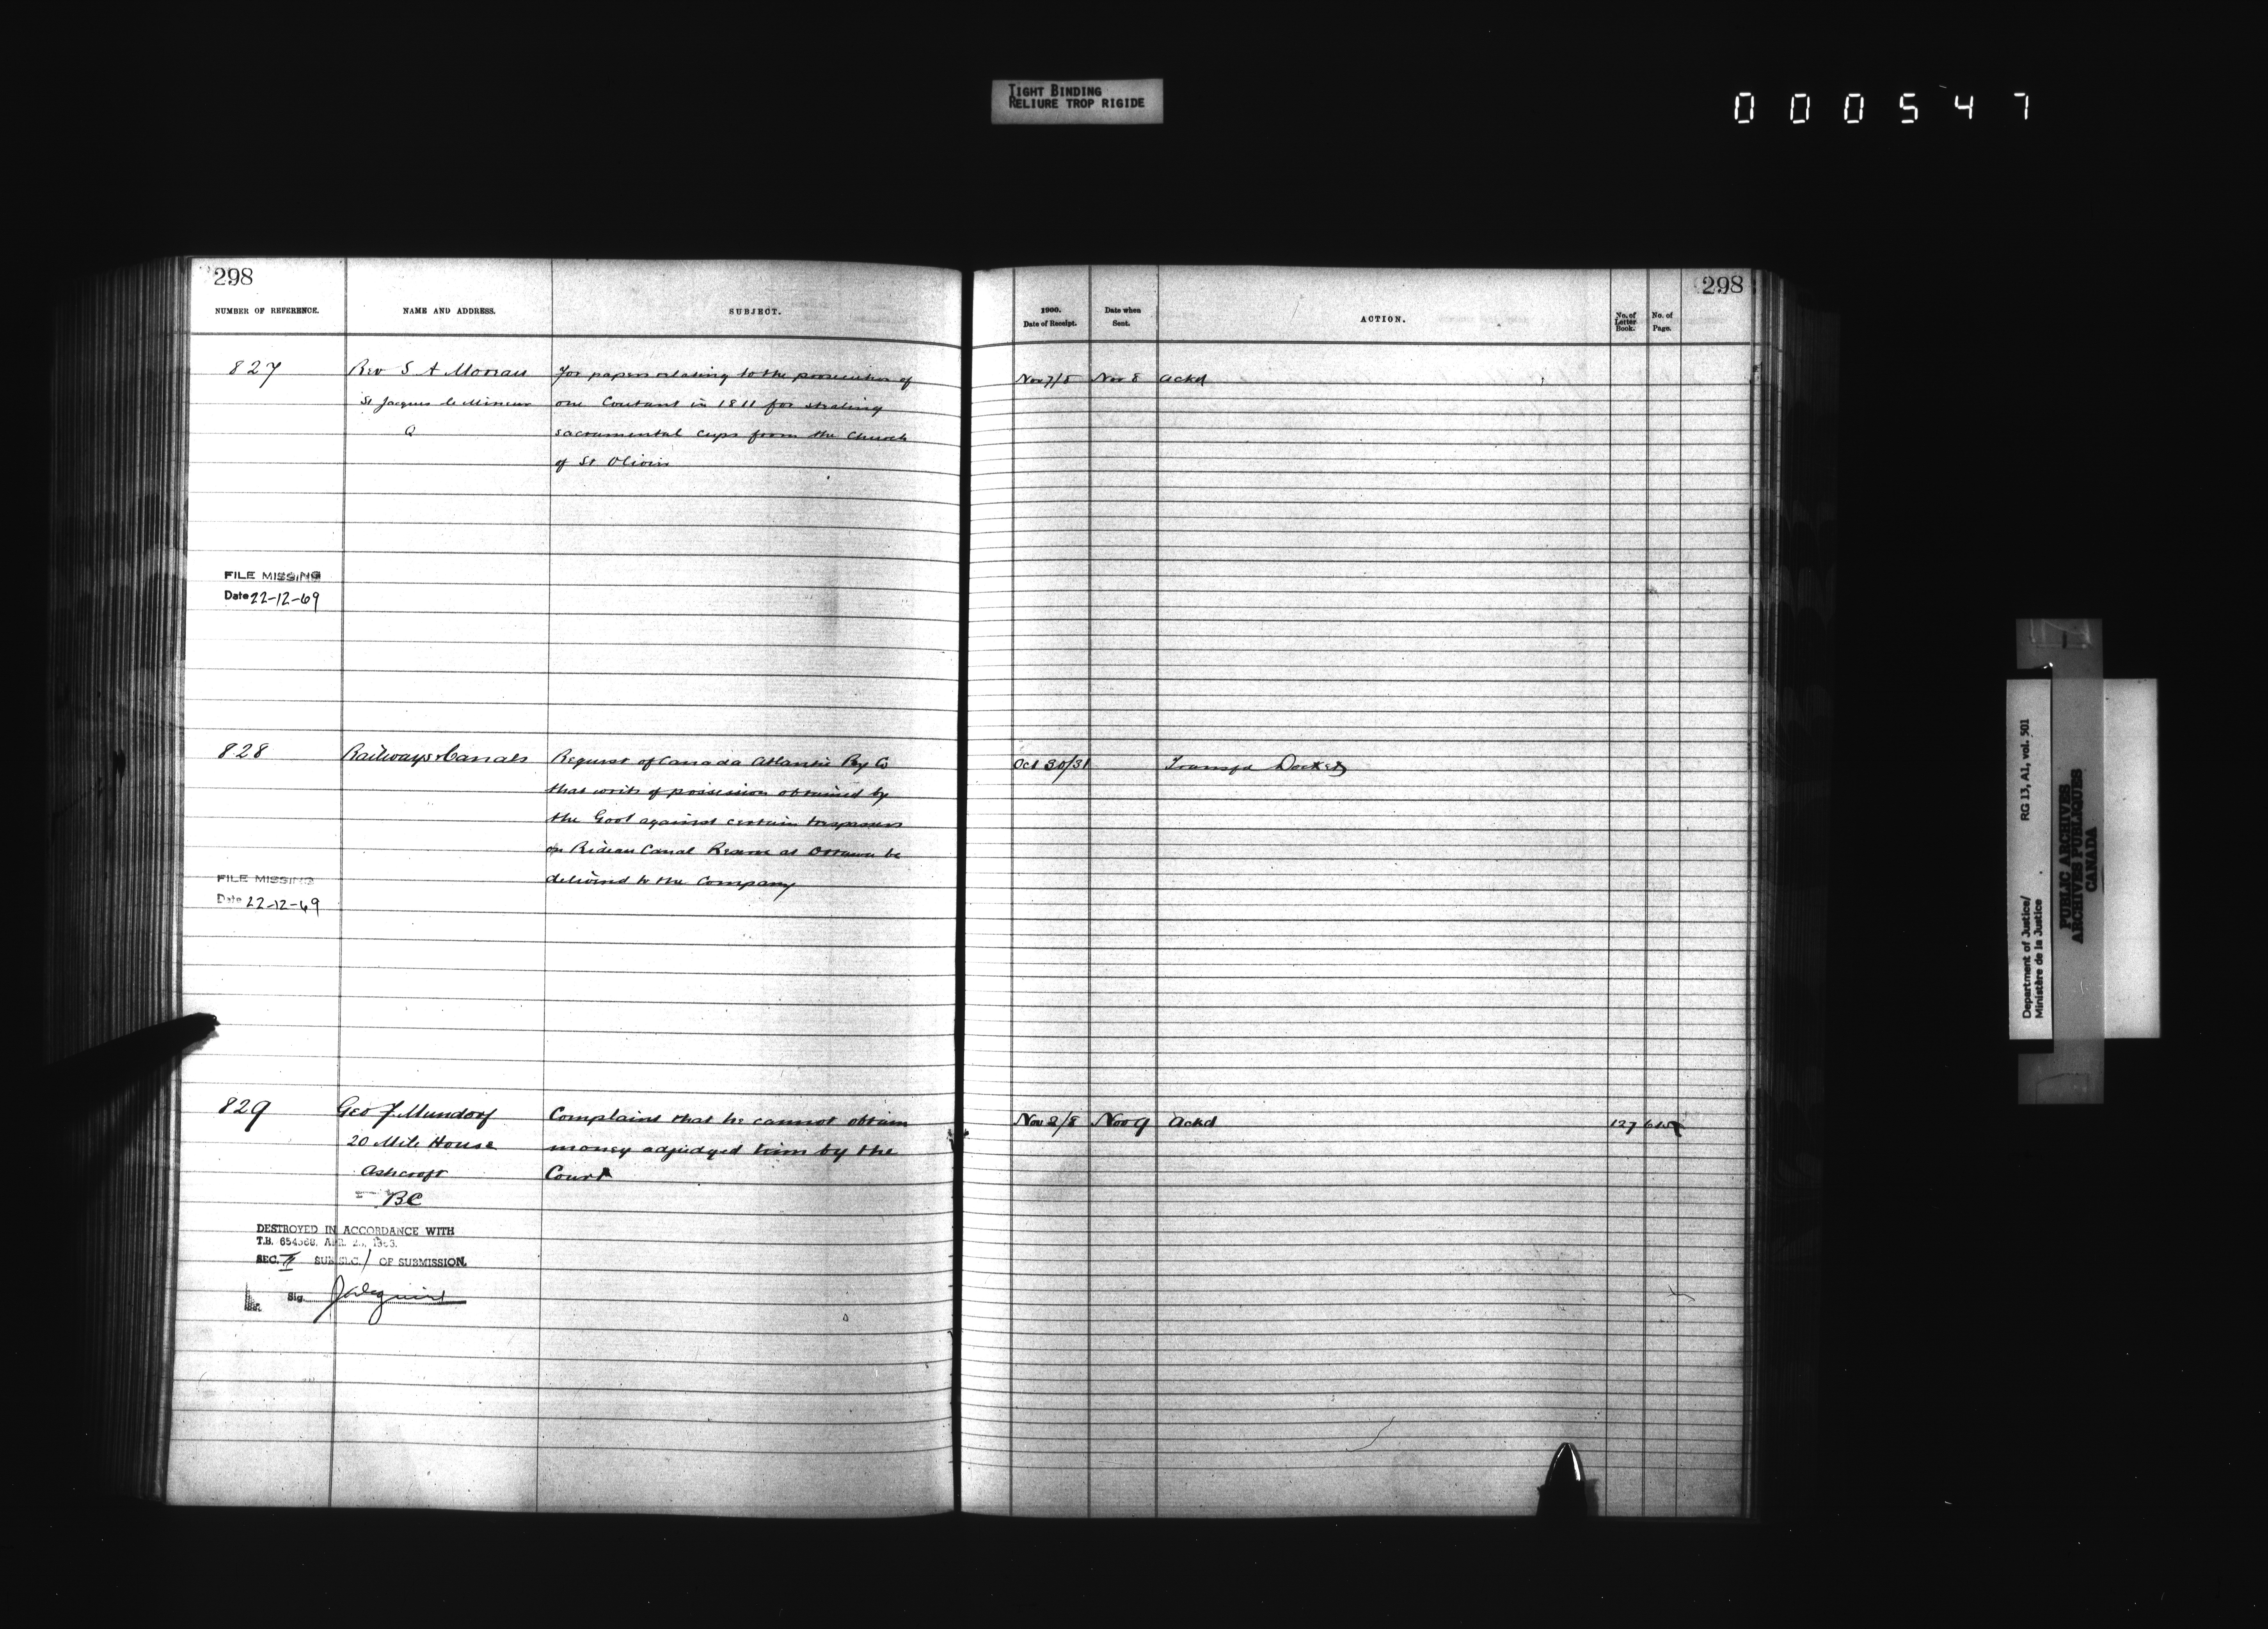 TIGHT BINDING
RELIURE TROP RIGIDE
000547
298
NUMBER OF REFERENCE.
NAME AND ADDRESS.
SUBJECT.
827
Rev S A Moreau
St Jacques le Mineur
Q
For papers relating to the prosecution of
one Coutant in 1811 for stealing
sacramental cups from the Church
of St Olivier
FILE MISSING
Date 22-12-69
828
Railways & Canals
Request of Canada Atlantic Ry Co
that writs of possession obtained by
the Govt against certain trespassers
on Rideau Canal Reserve at Ottawa be
delivered to the Company
FILE MISSING
Date 22-12-69
829
Geo J. Mundorf
20 Mile House
Ashcroft
BC
Complains that he cannot obtain
money adjudged him by the
Court
DESTROYED IN ACCORDANCE WITH
T.B. APR.
SEC. II SUB SEC. 1 OF SUBMISSION.
Sig.
298
1900.
Date of Receipt.
Date when
Sent.
ACTION.
No. of
Letter
Book.
No. of
Page.
Nov 7/8 Nov 8 Ackd
Oct 30/31 Transfd Docket
Nov 2/8 Nov 9 Ackd 127
Department of Justice/ RG 13, A1, vol. 501
Ministère de la Justice
PUBLIC ARCHIVES
ARCHIVES PUBLIQUES
CANADA